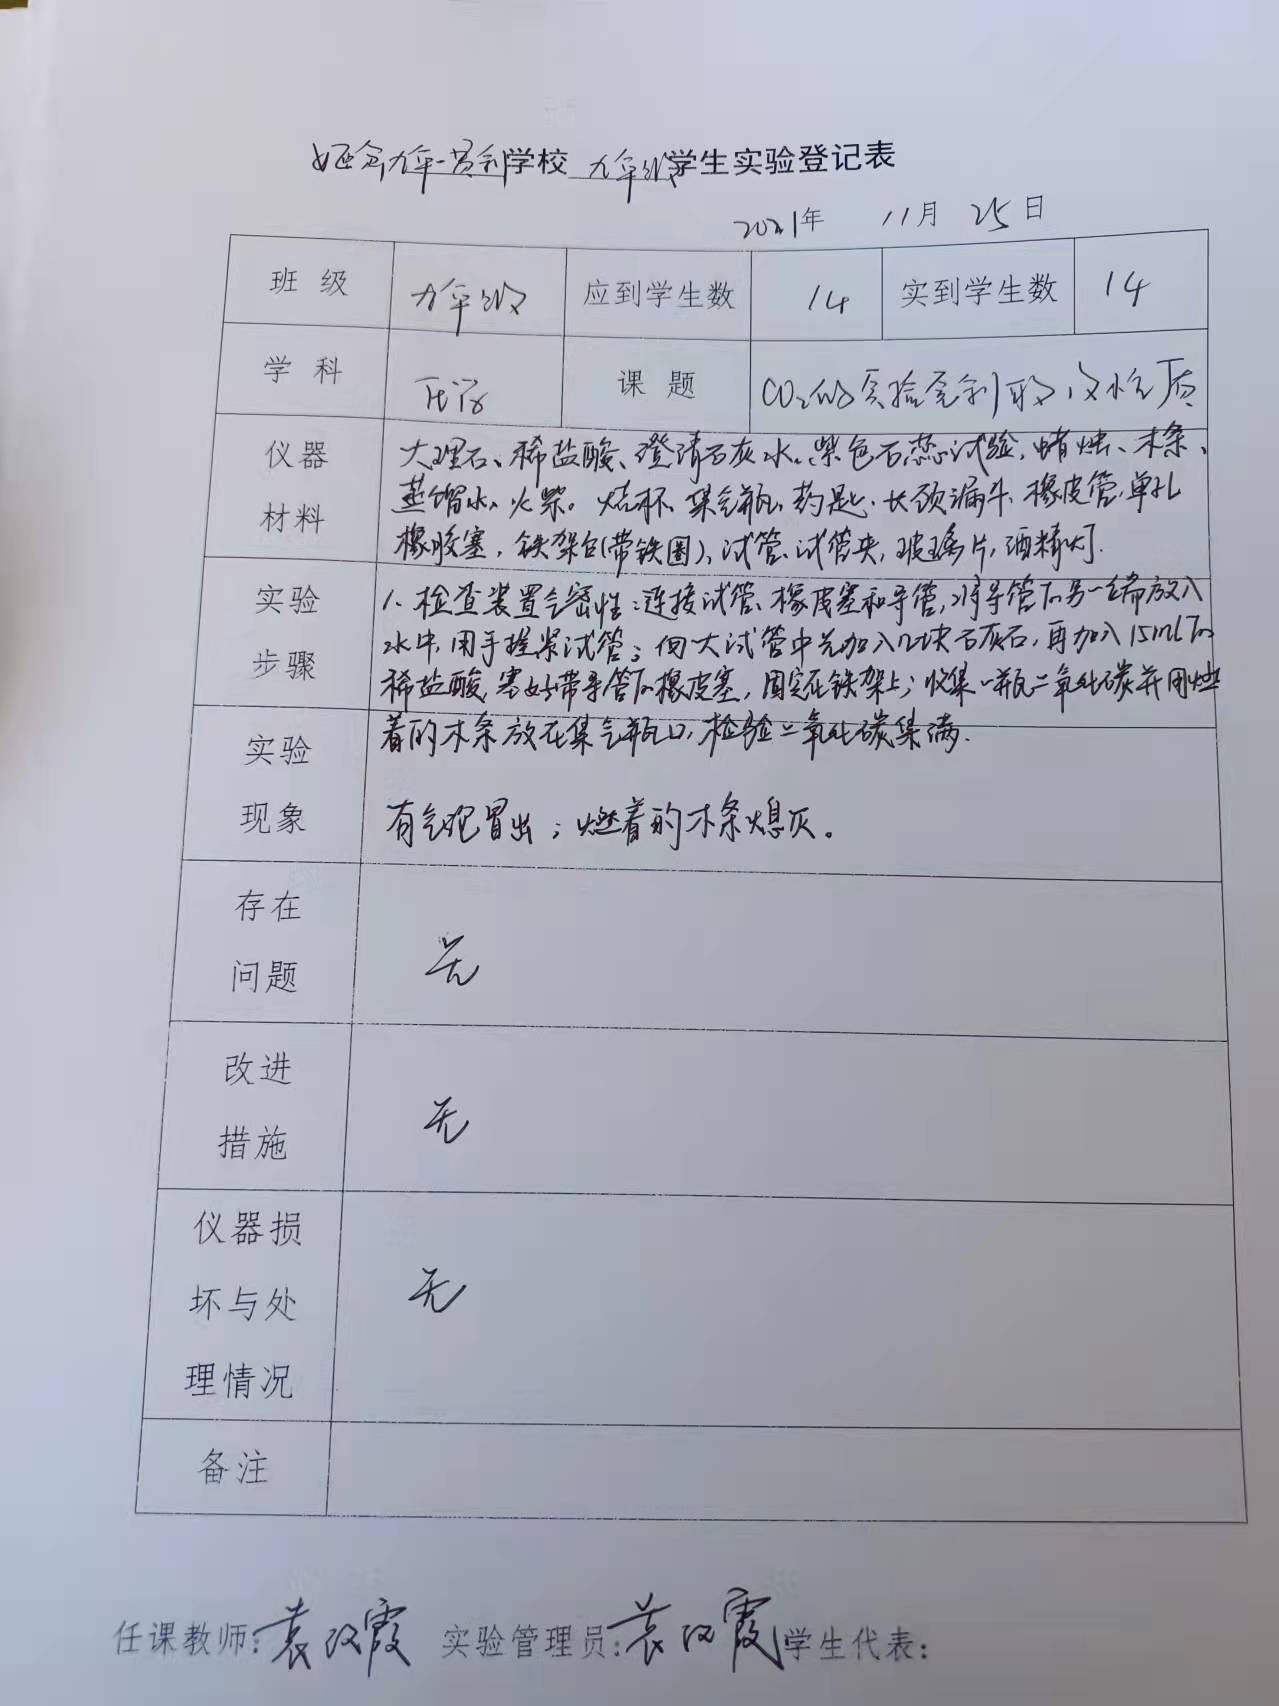 九年一贯制学校 九年级学生实验登记表
2021年 11月 25日
班级 九年级 应到学生数 14 实到学生数 14
学科 化学 课题 CO2的实验室制取及性质
仪器材料
大理石、稀盐酸、澄清石灰水、紫色石蕊试验,蜡烛、木条、
蒸馏水、火柴。烧杯、集气瓶、药匙、长颈漏斗、橡皮管、单孔
橡胶塞,铁架台(带铁圈)、试管、试管夹,玻璃片,酒精灯.
实验步骤
1、检查装置气密性:连接试管、橡皮塞和导管,将导管的另一端放入
水中,用手握紧试管;向大试管中先加入几块石灰石,再加入15ml的
稀盐酸,塞好带导管的橡皮塞,固定在铁架上;收集一瓶二氧化碳并用燃
着的木条放在集气瓶口,检验二氧化碳集满.
实验现象
有气泡冒出;燃着的木条熄灭。
存在问题
无
改进措施
无
仪器损坏与处理情况
无
备注
任课教师:袁改霞 实验管理员:袁改霞 学生代表: